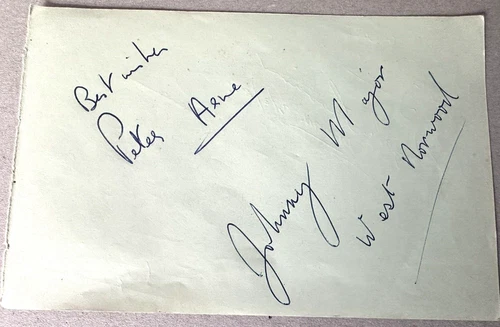 Best wishes
Peter Arne
Johnny Major
West Norwood